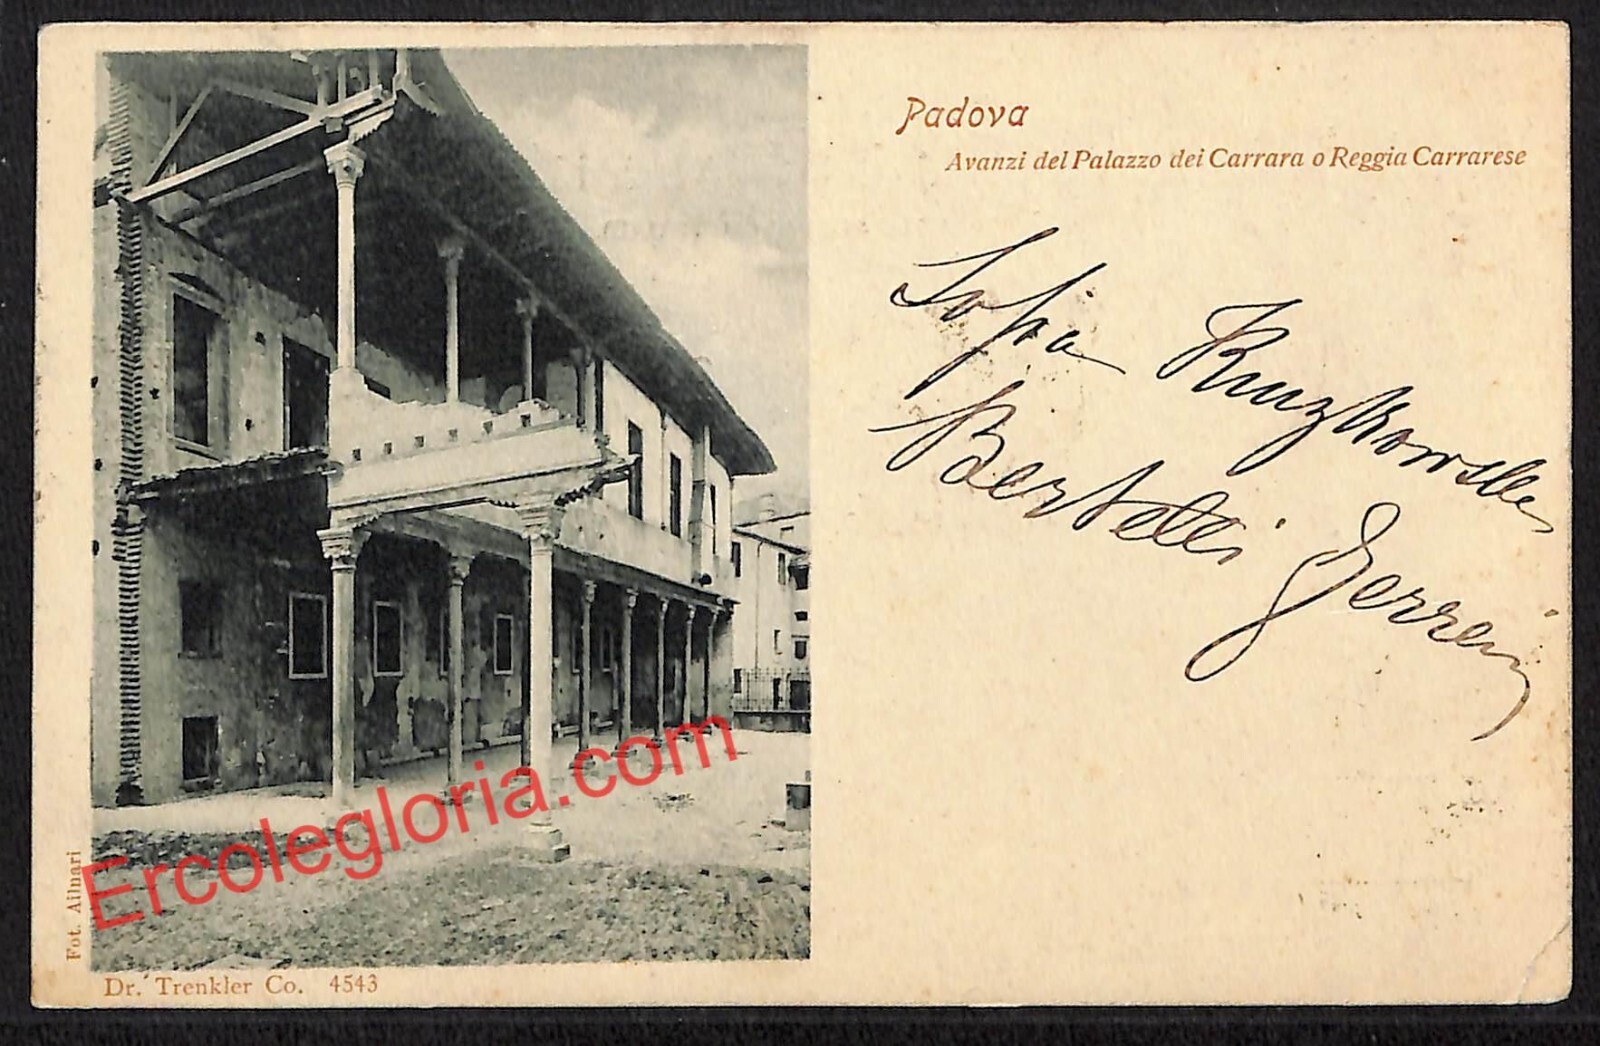 Padova
Avanzi del Palazzo dei Carrara o Reggia Carrarese
Sofia
Bertelli
Fot. Ailnari
Dr. Trenkler Co. 4543
Ercolegloria.com